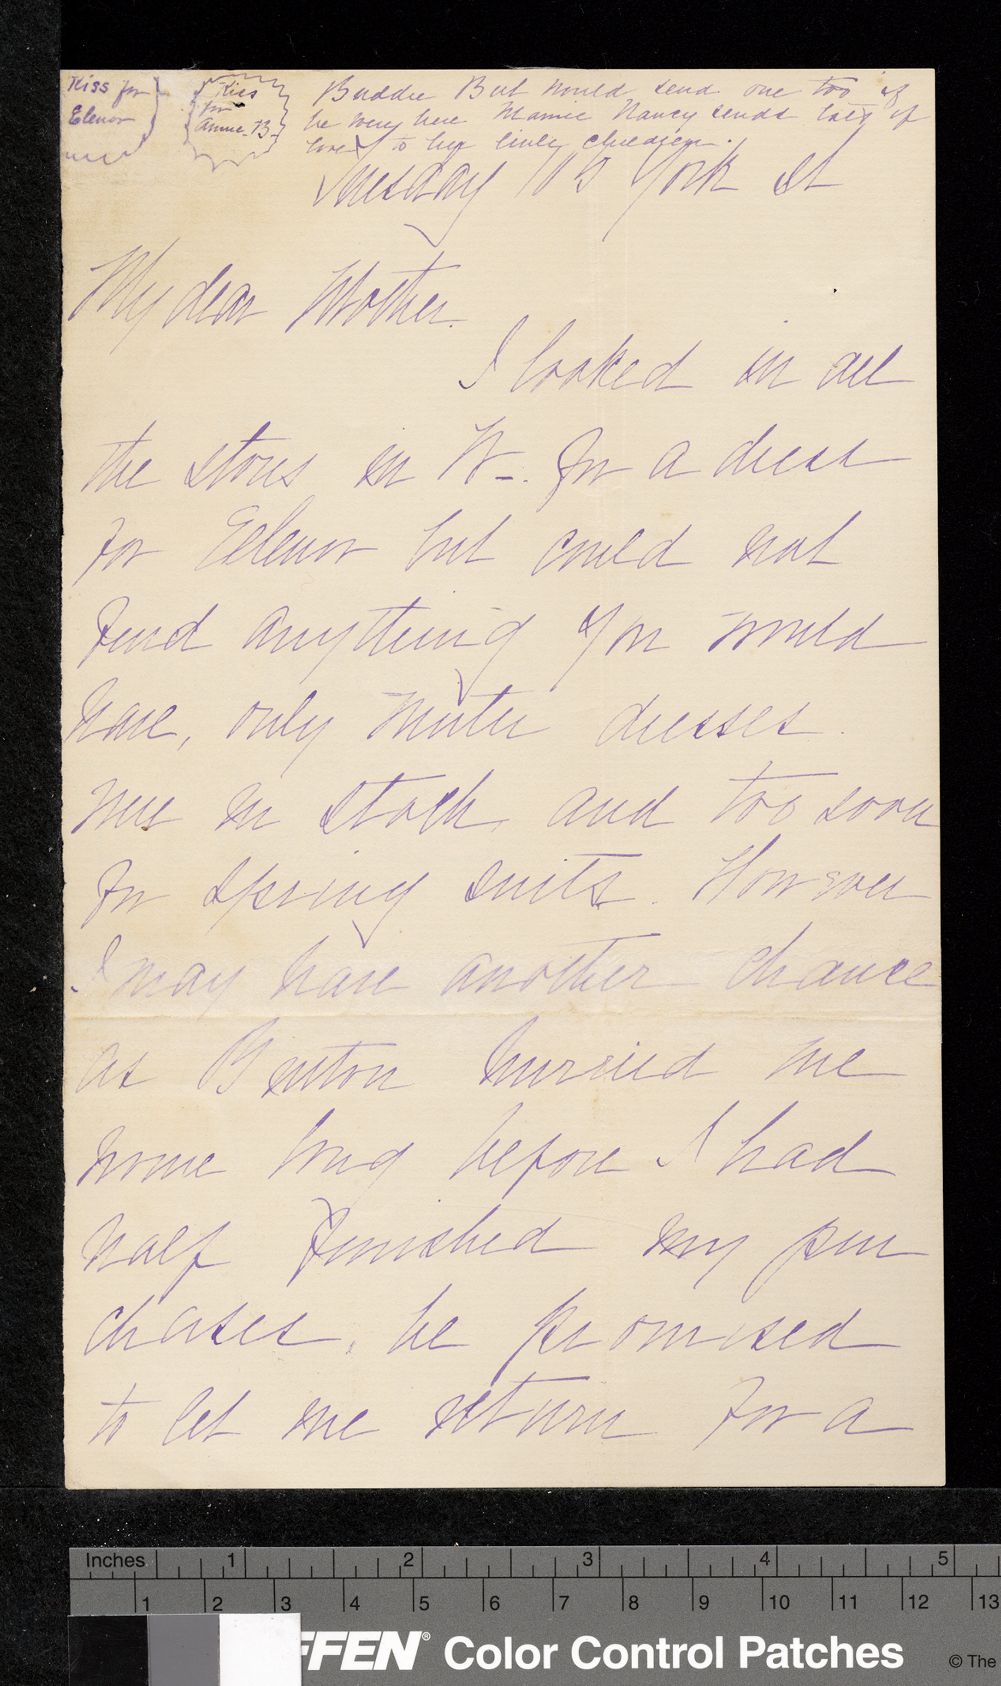 Kiss for
Elenor
Kiss
for
Annie B.
Buddie But would send one too if
he were here Mamie Nancy sends lots of
love to her little children.
Tuesday 113 York St
My dear Mother.
I looked in all
the stores in N-. for a dress
for Elenor but could not
find anything you would
have, only winter dresses
were in stock, and too soon
for spring suits. However
I may have another chance
as Benton hurried me
home long before I had
half finished my pur
chases, he promised
to let me return for a
Inches 1 2 3 4 5
1 2 3 4 5 6 7 8 9 10 11 12 13
FFEN® Color Control Patches
© The